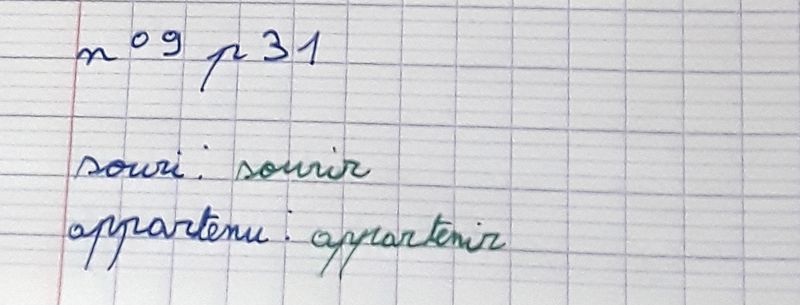 n°9 p 31
souri : sourir
appartenu : appartenir